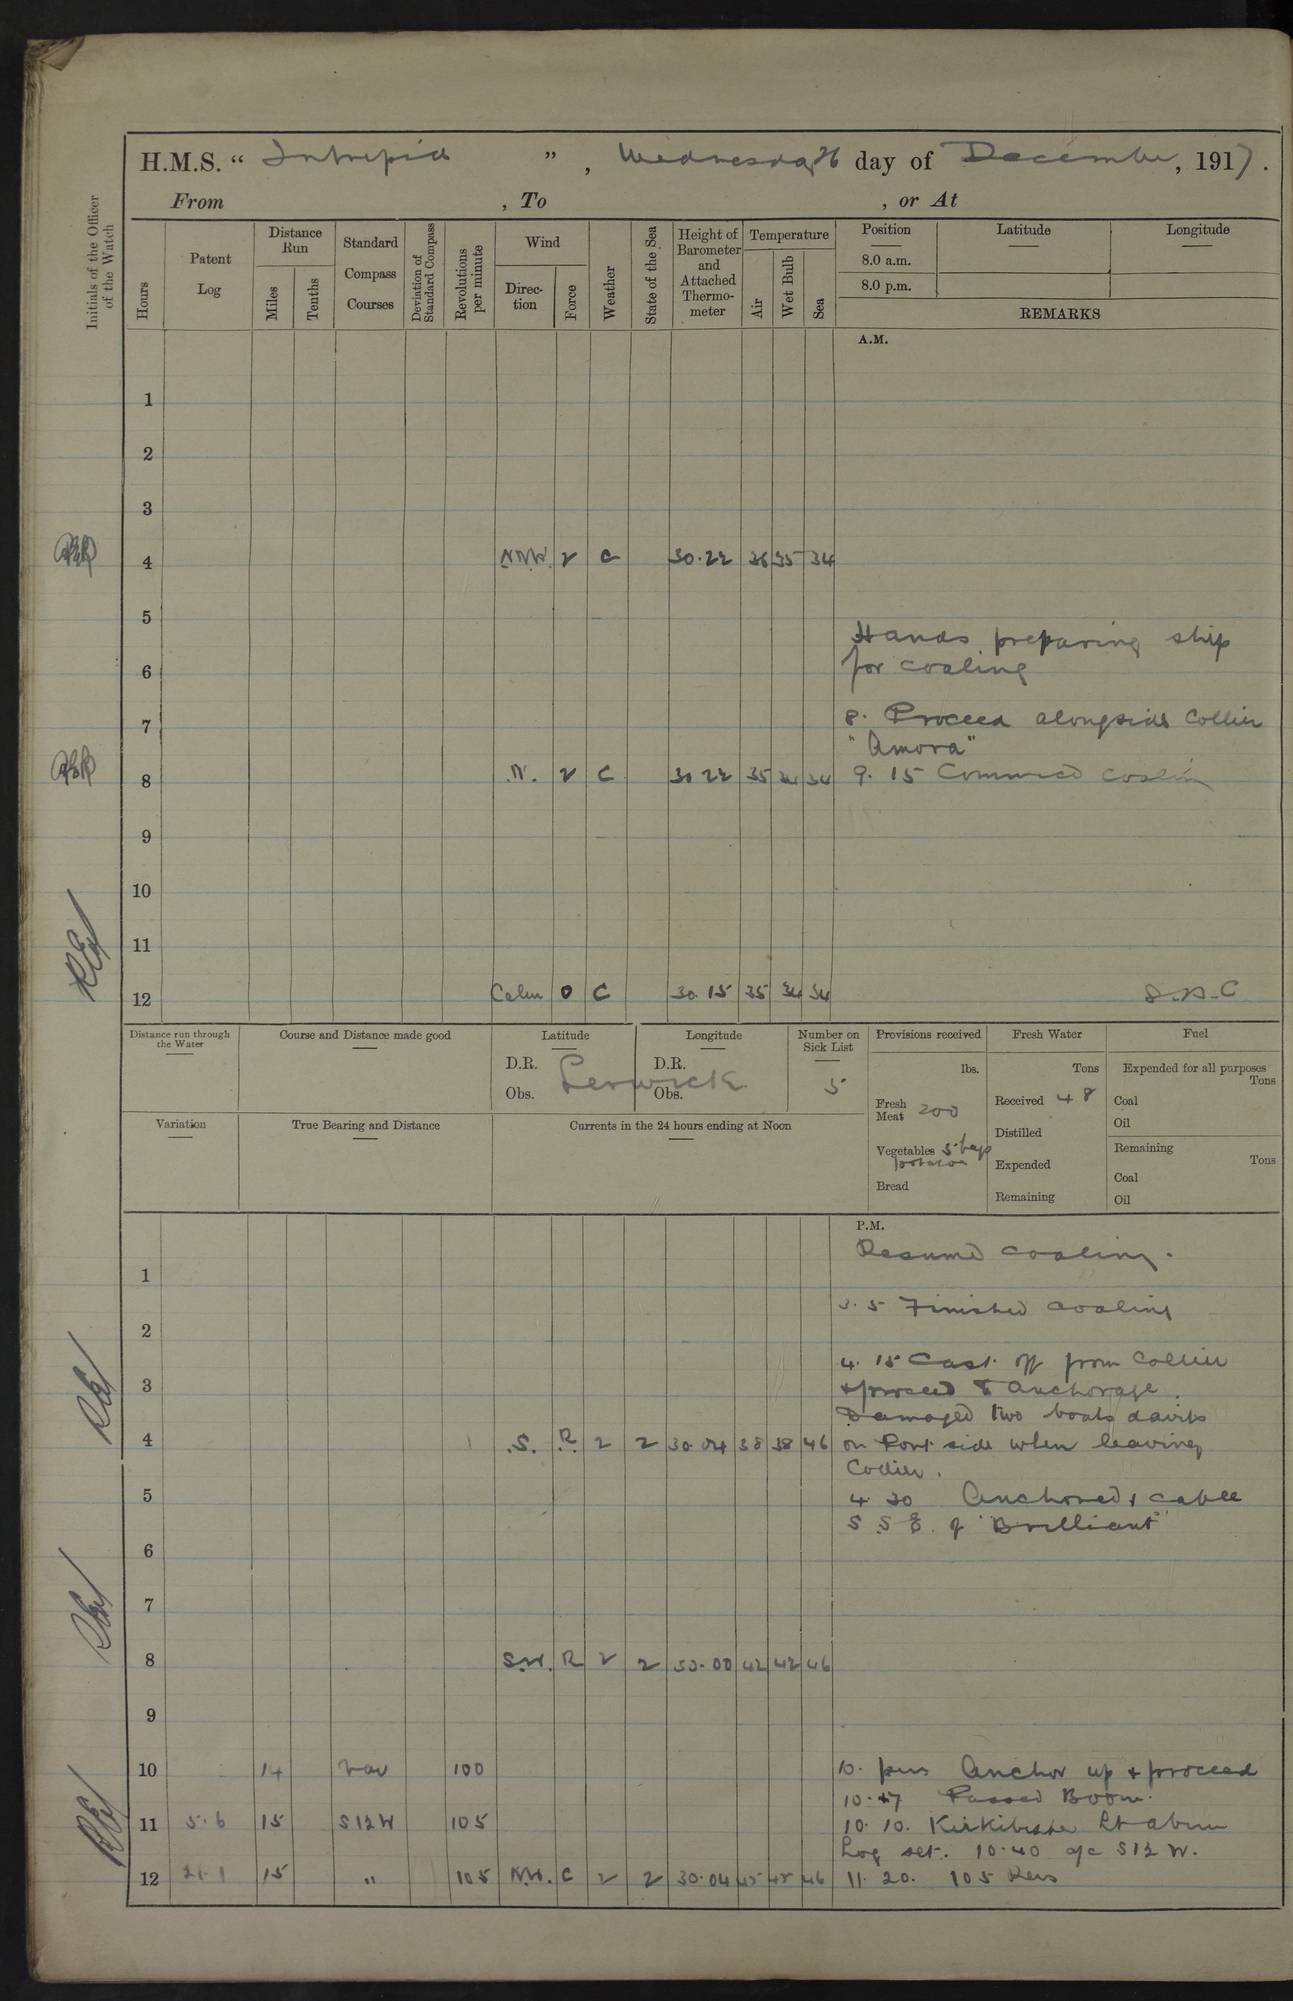 H.M.S. " Intrepid ", Wednesday 26 day of December, 1917.
From , To , or At
Initials of the Officer of the Watch
Hours
Patent Log
Distance Run
Miles
Tenths
Standard Compass Courses
Deviation of Standard Compass
Revolutions per minute
Wind
Direc-tion
Force
Weather
State of the Sea
Height of Barometer and Attached Thermo-meter
Temperature
Air
Wet Bulb
Sea
Position
8.0 a.m.
8.0 p.m.
Latitude
Longitude
REMARKS
A.M.
1
2
3
4 NNW. 2 C 30.22 36 35 34
5
Hands preparing ship
6 for coaling
7 8. Proceed alongside Collier
"Amora"
8 N. 2 C 30 22 35 34 34 9. 15 Commced coaling
9
10
11
12 Calm 0 C 30.15 35 34 34
Distance run through the Water
Course and Distance made good
Latitude
D.R.
Obs.
Lerwick
Longitude
D.R.
Obs.
Number on Sick List
5
Provisions received
lbs.
Fresh Meat 200
Vegetables 5 bags
potatoes
Bread
Fresh Water
Tons
Received 48
Distilled
Expended
Remaining
Fuel
Expended for all purposes
Tons
Coal
Oil
Remaining
Tons
Coal
Oil
Variation
True Bearing and Distance
Currents in the 24 hours ending at Noon
P.M.
Resume coaling.
1
3. 5 Finished coaling
2
4. 15 Cast off from Collier
3 + proceed to anchorage.
Damaged two boats davits
4 S. R 2 2 30.04 38 38 46 on Port side when leaving
Collier.
5 4 30 Anchored, cable
S S E. of "Brilliant"
6
7
8 S.W. R 2 2 30.00 42 42 46
9
10 14 var 100 10. pm Anchor up + proceed
10.+7 Passed Boom.
11 5.6 15 S12W 105 10. 10. Lt abeam
Log set. 10.40 a/c S12 W.
12 21.1 15 " 105 NW. C 2 2 30.04 45 45 46 11. 20. 105 Revs